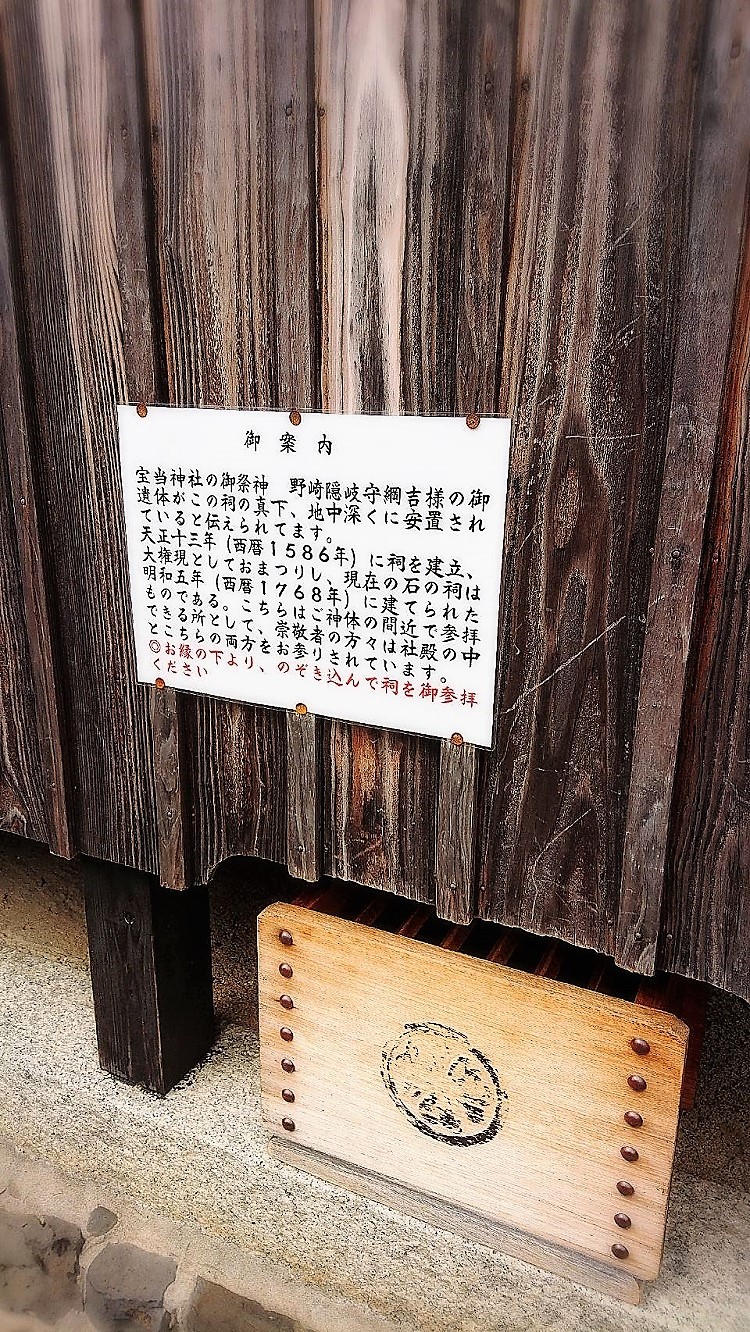 御案内
宝当神社の御祭神　野崎隠岐守綱吉様の御
遺体がこの祠の真下、地中深くに安置され
ていると伝えられてます。
天正十三年（西暦1586年）に祠を建立、
大権現としておまつりし、現在の石の祠は
明和五年（西暦1768年）に建てられた
ものである。こちらはご神体の間近で参拝
できる所として、崇敬者の方々は社殿の中
とこちらの両方をお参りされています。
◎お縁の下より、のぞき込んで祠を御参拝
ください